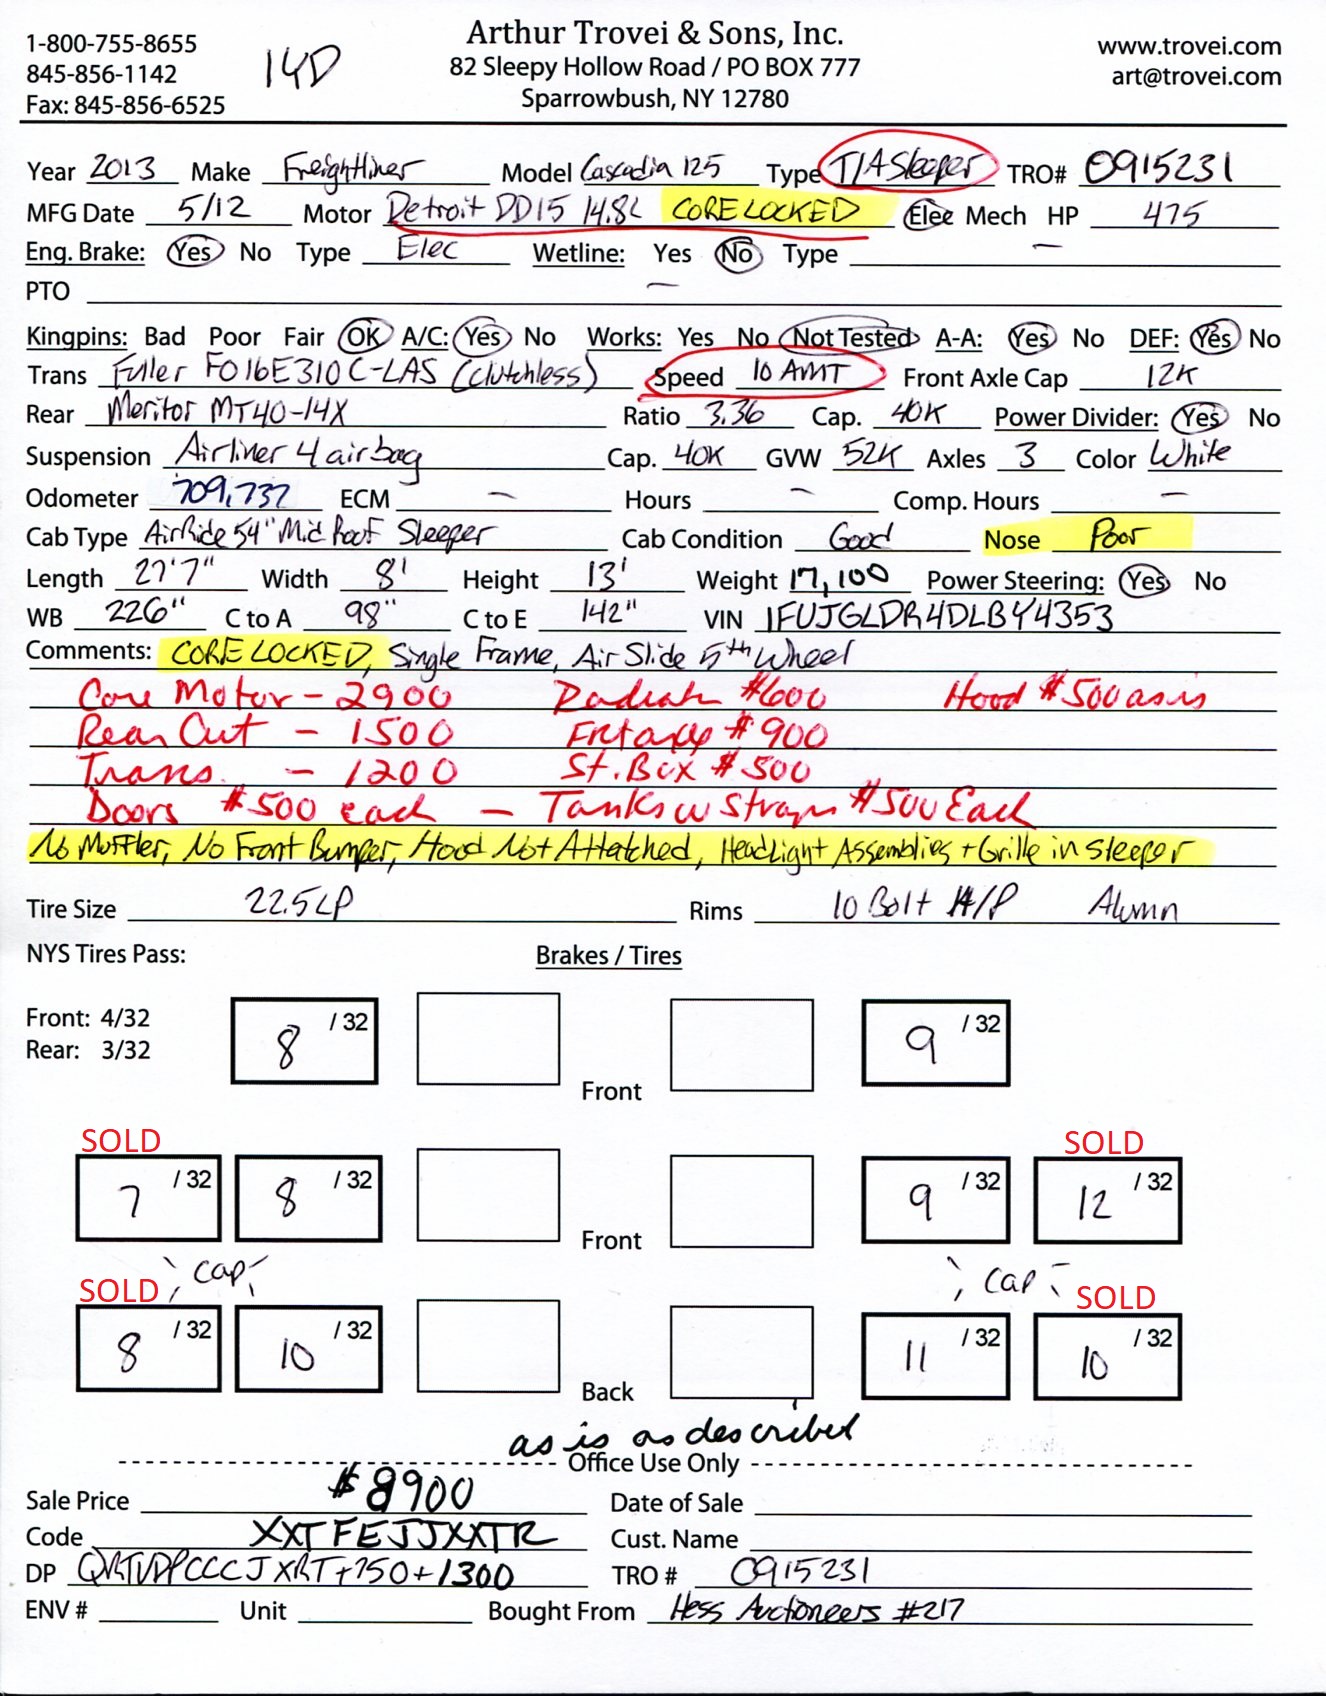 Arthur Trovei & Sons, Inc.
1-800-755-8655 www.trovei.com
845-856-1142 14D 82 Sleepy Hollow Road / PO BOX 777 art@trovei.com
Fax: 845-856-6525 Sparrowbush, NY 12780
Year 2013 Make Freightliner Model Cascadia 125 Type T/A Sleeper TRO# 0915231
MFG Date 5/12 Motor Detroit DD15 14.8L CORE LOCKED Elec Mech HP 475
Eng. Brake: Yes No Type Elec Wetline: Yes No Type —
PTO —
Kingpins: Bad Poor Fair OK A/C: Yes No Works: Yes No Not Tested A-A: Yes No DEF: Yes No
Trans Fuller FO16E310C-LAS (Clutchless) Speed 10 AMT Front Axle Cap 12K
Rear Meritor MT40-14X Ratio 3.36 Cap. 40K Power Divider: Yes No
Suspension Airliner 4 airbag Cap. 40K GVW 52K Axles 3 Color White
Odometer 709,737 ECM — Hours — Comp. Hours —
Cab Type AirRide 54" Mid Roof Sleeper Cab Condition Good Nose Poor
Length 27'7" Width 8' Height 13' Weight 17,100 Power Steering: Yes No
WB 226" C to A 98" C to E 142" VIN 1FUJGLDR4DLBY4353
Comments: CORE LOCKED, Single Frame, Air Slide 5th Wheel
Core Motor - 2900 Radiator $600 Hood $500 as is
Rear Cut - 1500 Frt axle $900
Trans. - 1200 St. Box $500
Doors $500 each - Tanks w Straps $500 Each
No Muffler, No Front Bumper, Hood Not Attatched, Headlight Assemblies + Grille in sleeper
Tire Size 22.5LP Rims 10 Bolt H/P Alumn
NYS Tires Pass: Brakes / Tires
Front: 4/32
Rear: 3/32
8 /32 9 /32
Front
SOLD SOLD
7 /32 8 /32 9 /32 12 /32
Front
Cap Cap
SOLD SOLD
8 /32 10 /32 11 /32 10 /32
Back
as is as described
Office Use Only
Sale Price $8900 Date of Sale
Code XXTFEJJXXTR Cust. Name
DP QRTVDPCCCJXRT+750+1300 TRO # 0915231
ENV # Unit Bought From Hess Auctioneers #217